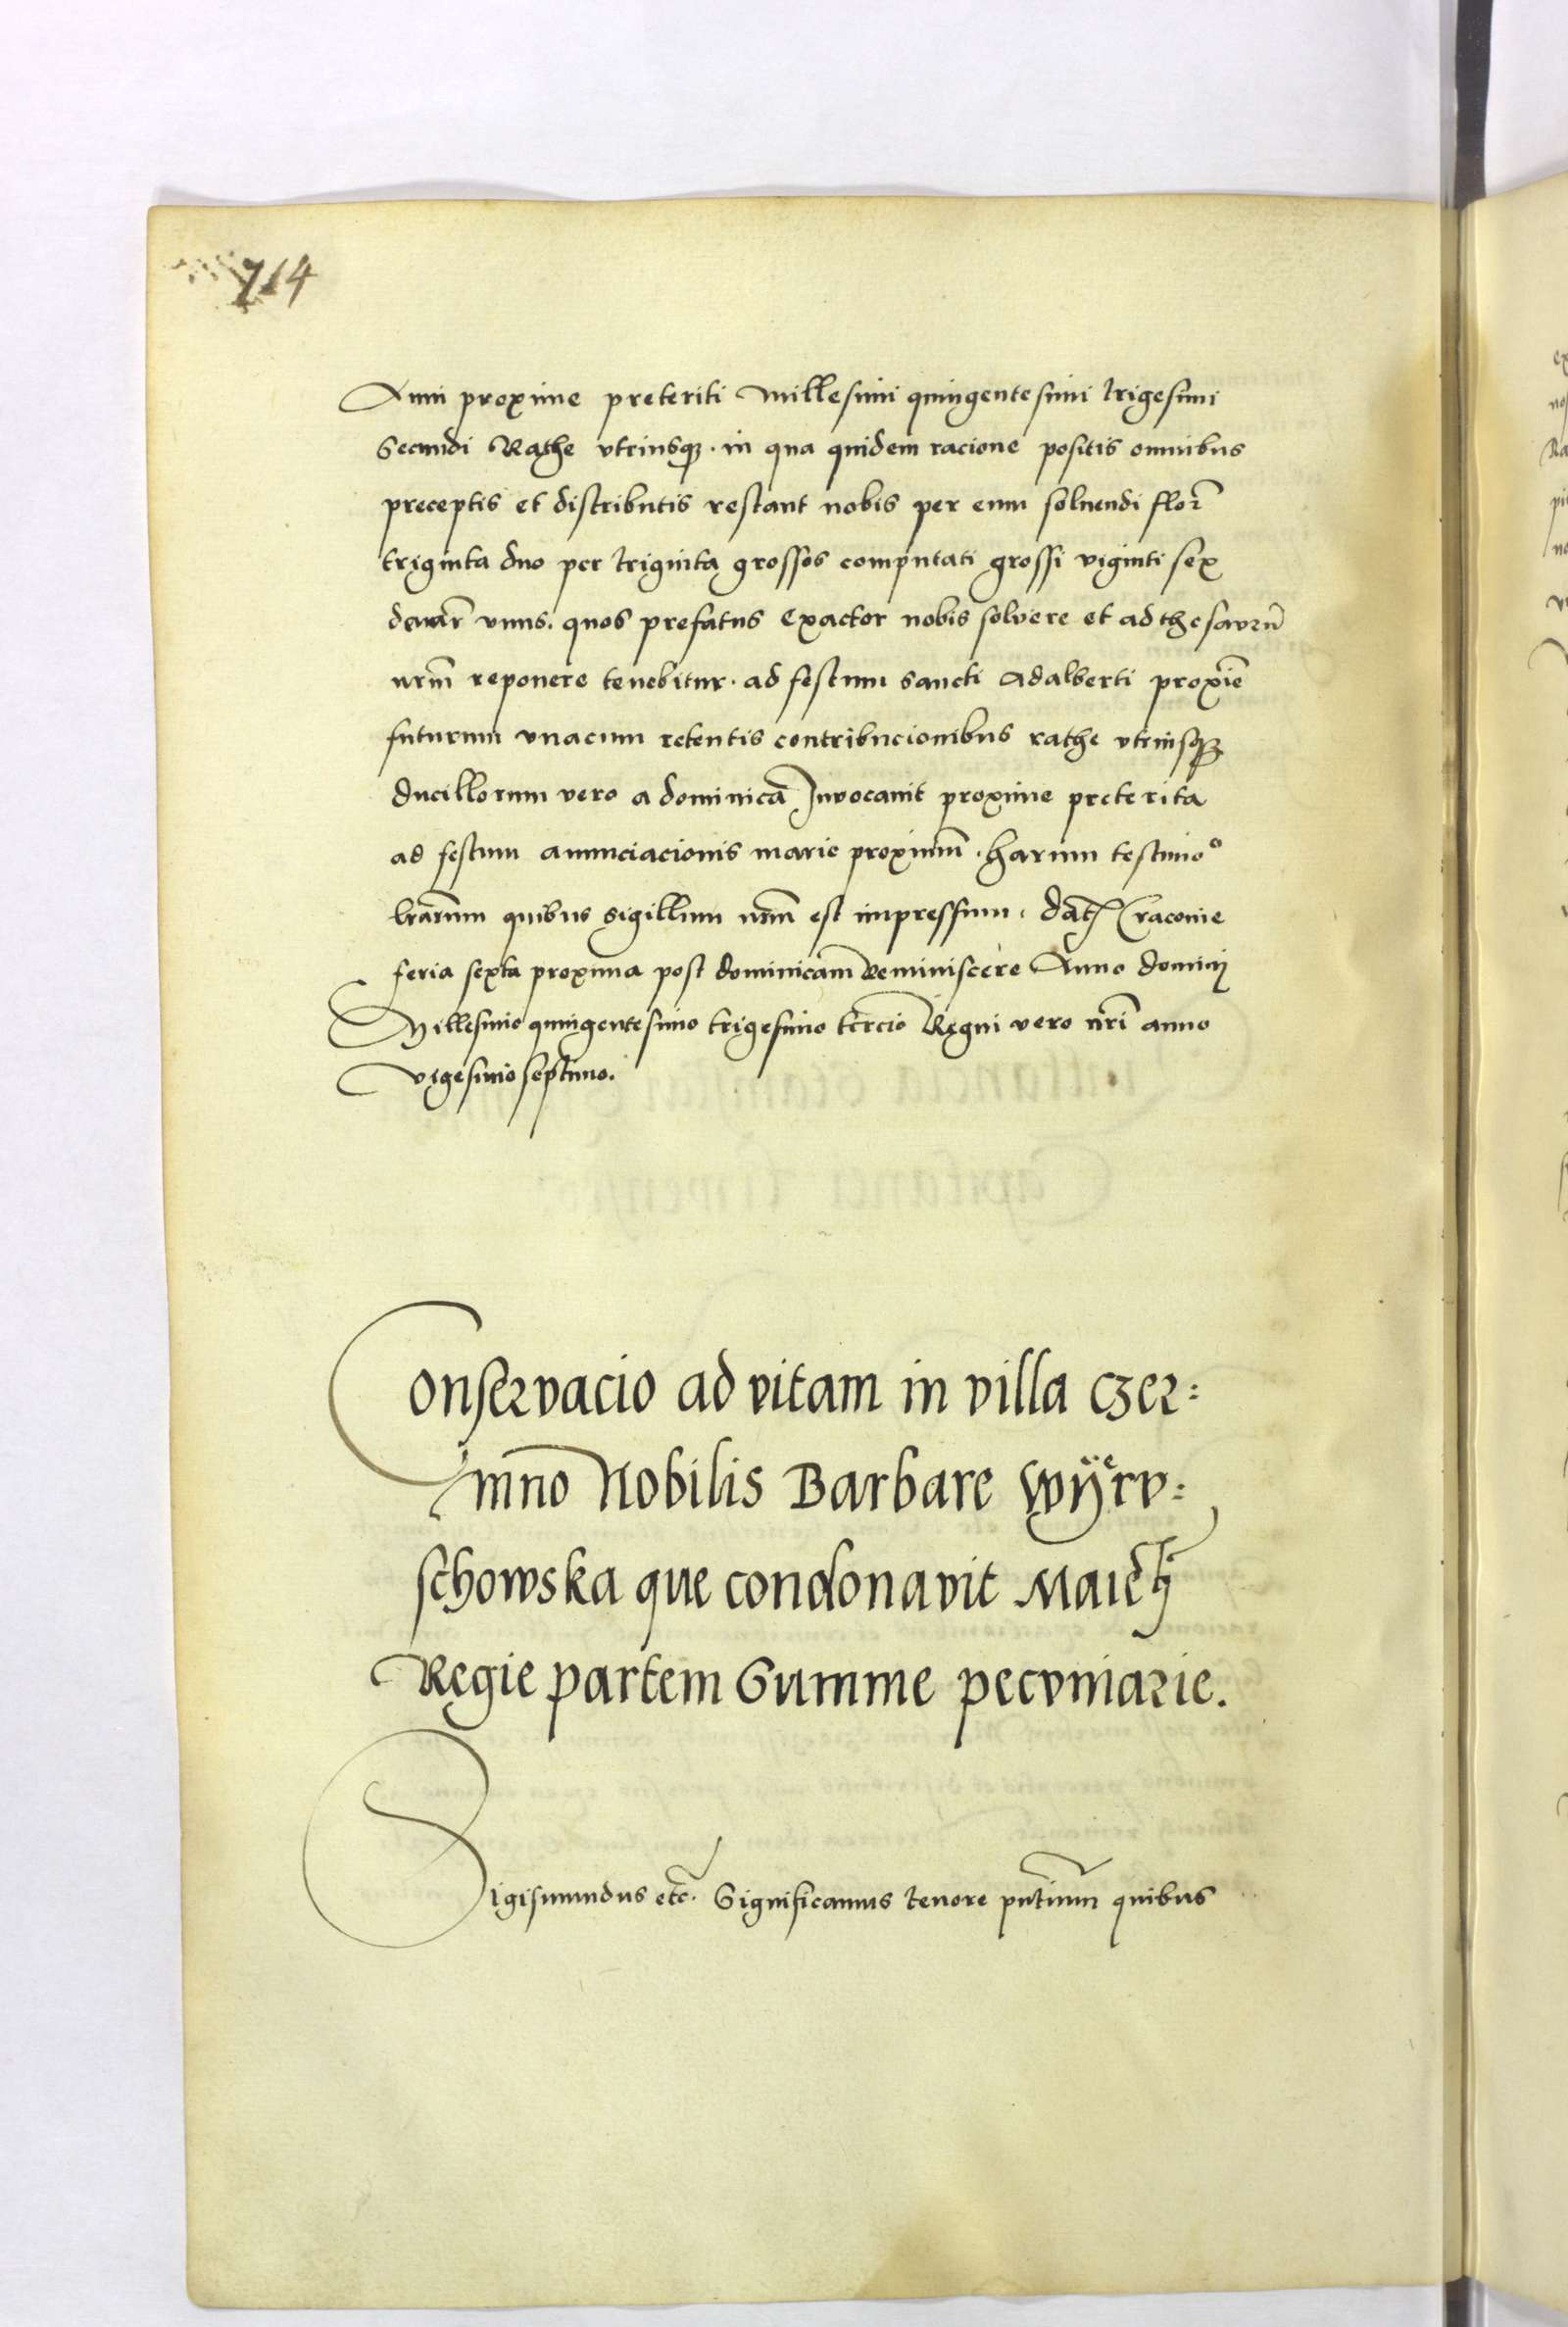 714
Anni proxime preteriti Millesimi quingentesimi trigesimi
Secundi Rathe vtriusqȝ. in qua quidem racione positis omnibus
preceptis et distributis restant nobis per eum soluendi flor̃
triginta duo per triginta grossos computati grossi viginti sex
denar̃ vnus. quos prefatus Exactor nobis solvere et ad thesavrũ
nrm̃ reponere tenebitur. ad festum Sancti Adalberti proxĩe
futurum vnacum retentis contribucionibus rathe vtriusqȝ
Ducillorum vero a dominicã Invocavit proxime preterita
ad festum anunciacionis marie proximũ. harum testimoº
lr̃arum quibus sigillum nrm̃ est impressum. Dat̃ Cracovie
feria sexta proxima post dominicam Reminiscere Anno dominj
Millesimo quingentesimo trigesimo tercio Regni vero nr̃i anno
vigesimo septimo.
Conservacio ad vitam in villa Czer:
mno Nobilis Barbare Wÿerv:
schowska que condonavit Maiet̃j
Regie partem Summe pecvniarie.
Sigismundus etc̃. Significamus tenore pñtium̃ quibus